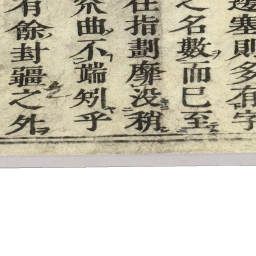 邊塞則多有字
之名數而已至
在指劃靡沒稍
介曲不端矧乎
有餘封疆之外